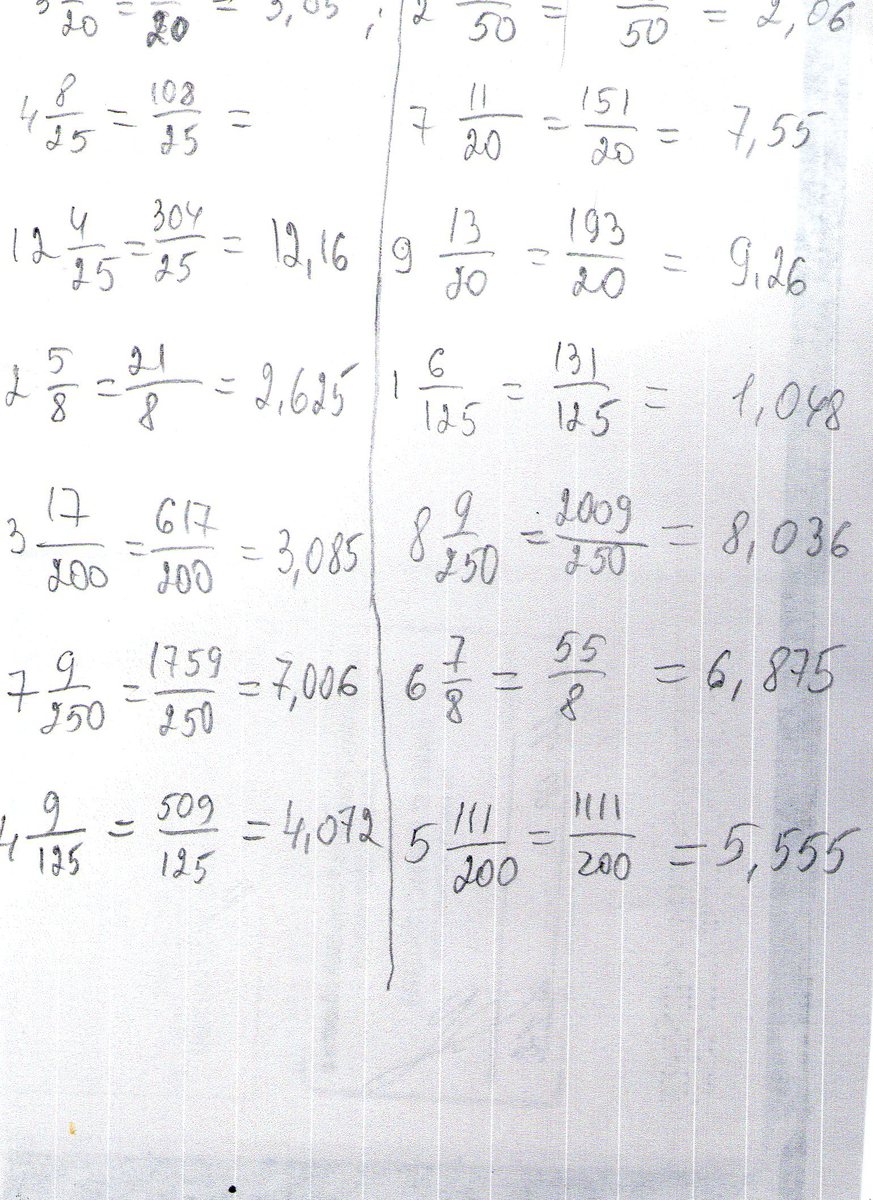 20 = 20 = 3,05 ; 2 50 = 50 = 2,06
4 8/25 = 108/25 =
7 11/20 = 151/20 = 7,55
12 4/25 = 304/25 = 12,16
9 13/20 = 193/20 = 9,26
2 5/8 = 21/8 = 2,625
1 6/125 = 131/125 = 1,048
3 17/200 = 617/200 = 3,085
8 9/250 = 2009/250 = 8,036
7 9/250 = 1759/250 = 7,006
6 7/8 = 55/8 = 6,875
4 9/125 = 509/125 = 4,072
5 111/200 = 1111/200 = 5,555